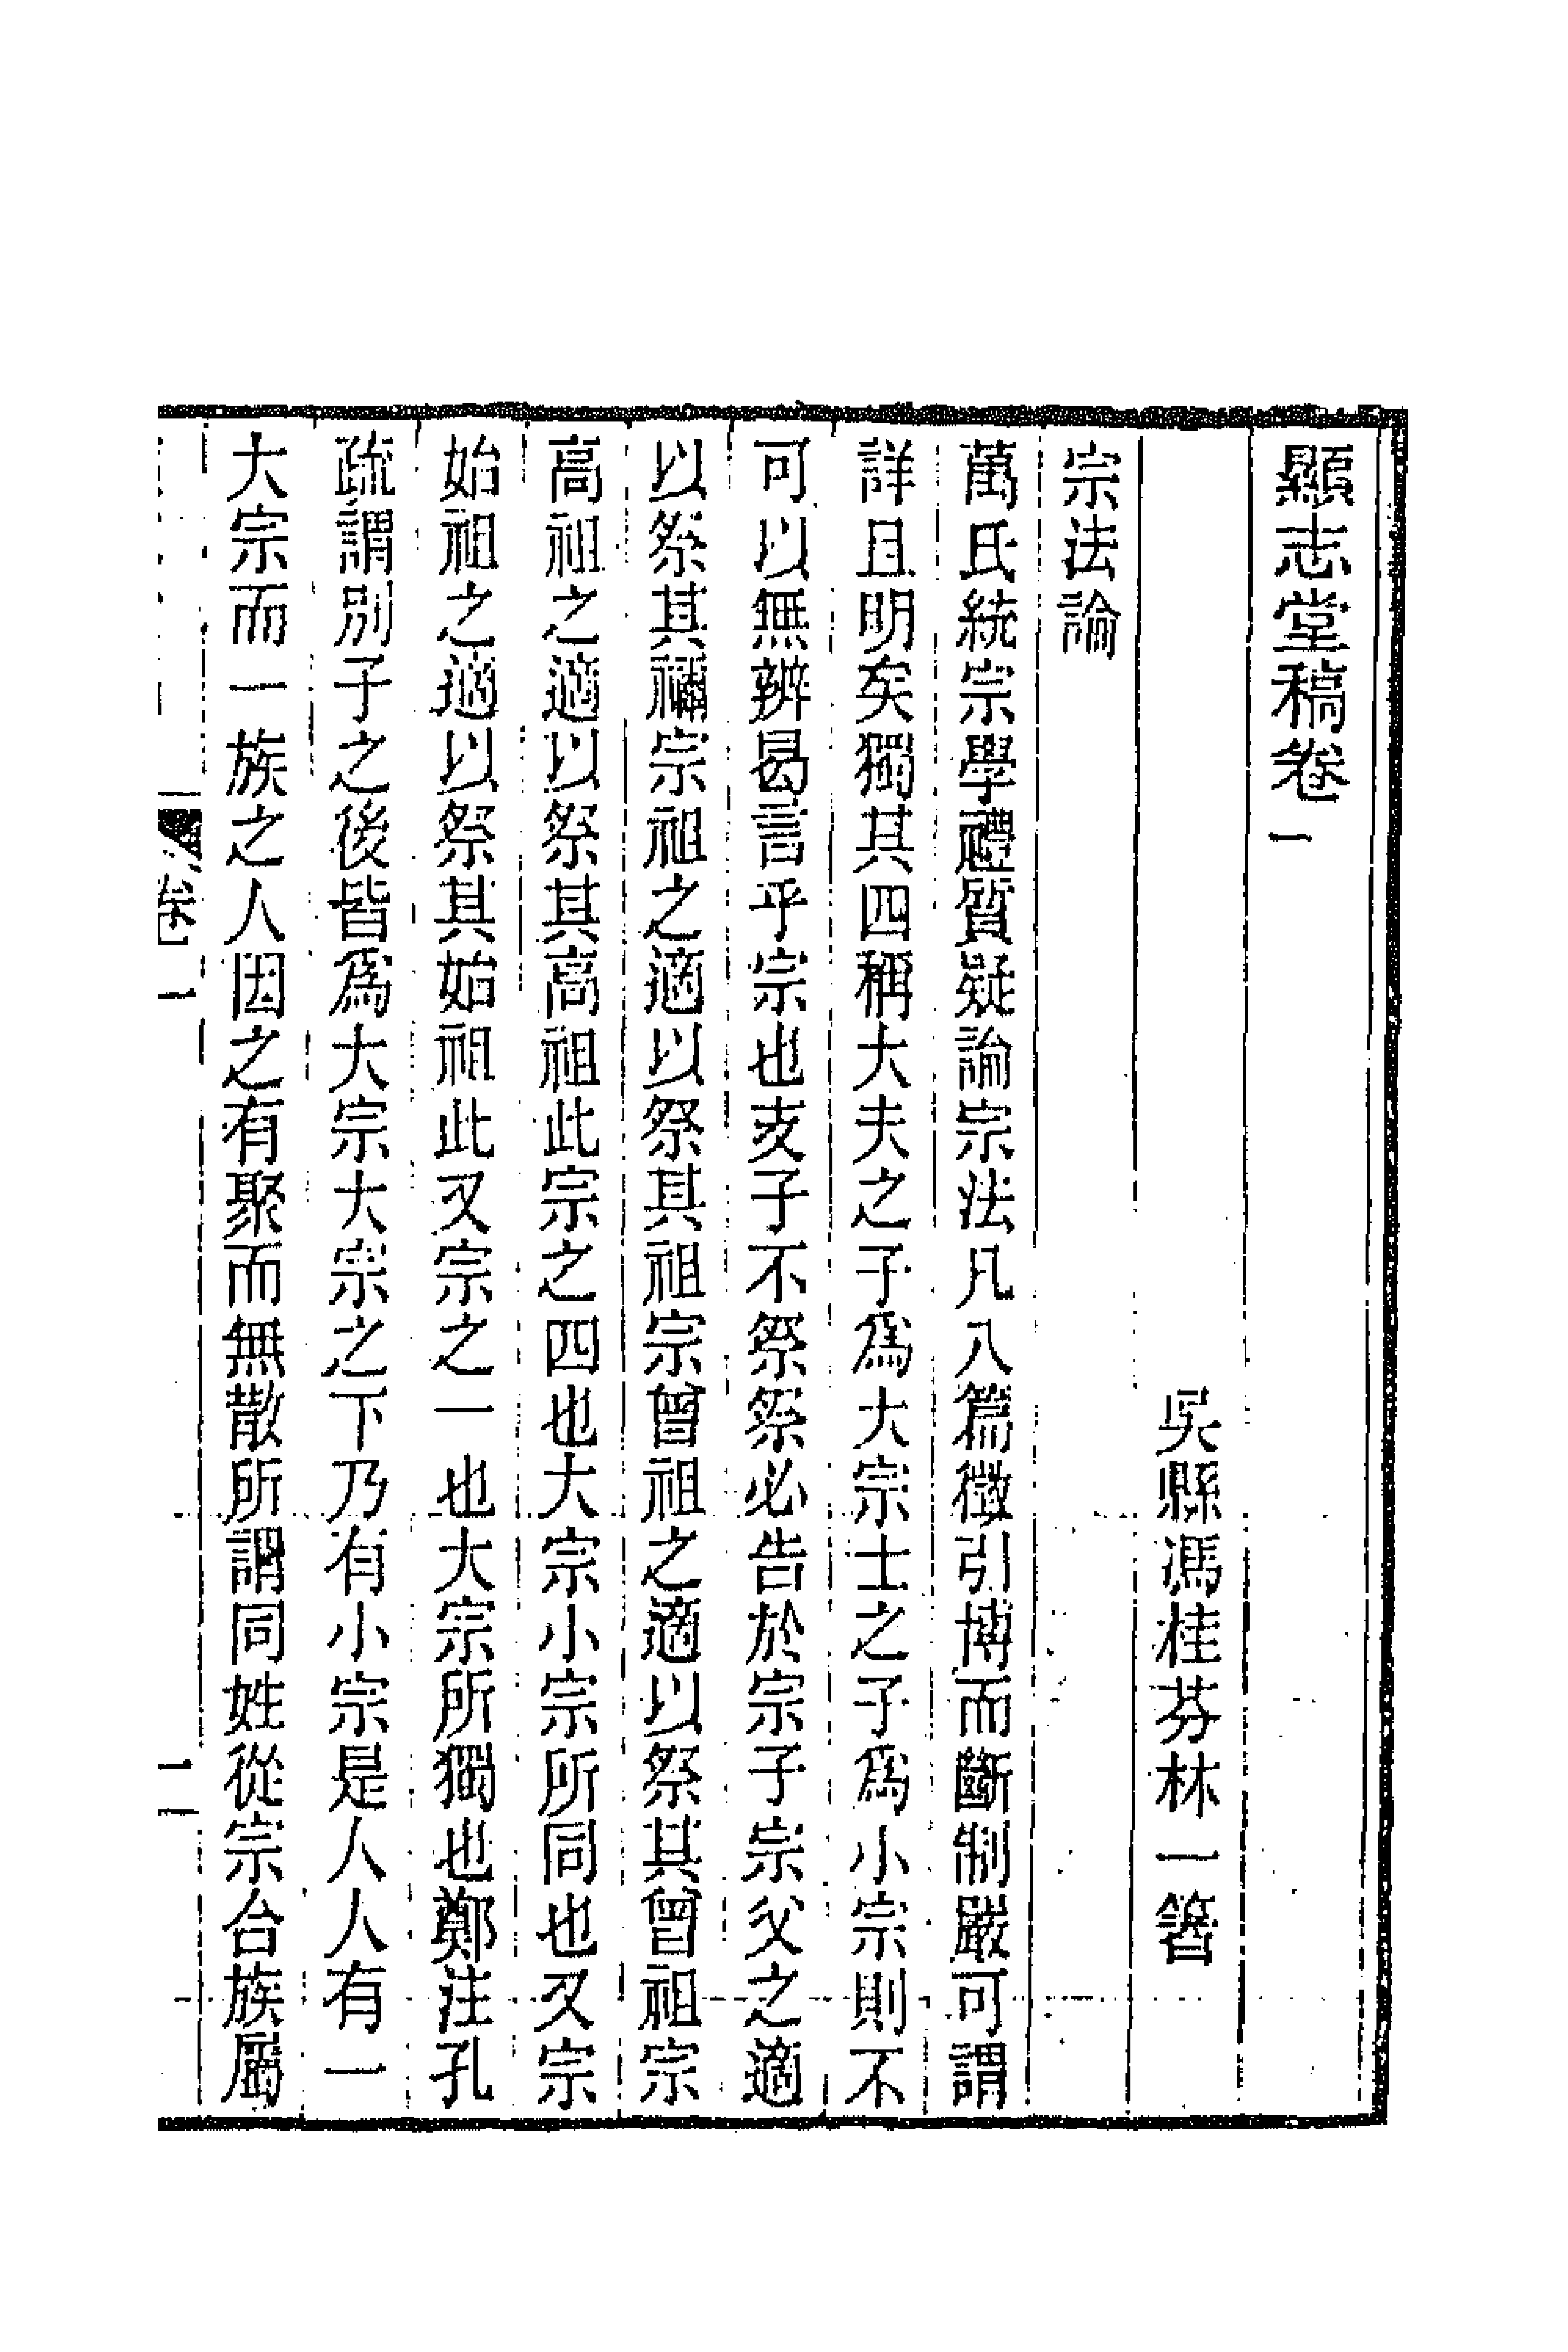 顯志堂稿卷一
吳縣馮桂芬林一箸
宗法論
萬氏統宗學禮質疑論宗法凡八篇徵引博而斷制嚴可謂
詳且明矣獨其四稱大夫之子爲大宗士之子爲小宗則不
可以無辨曷言乎宗也支子不祭祭必告於宗子宗父之適
以祭其禰宗祖之適以祭其祖宗曾祖之適以祭其曾祖宗
高祖之適以祭其高祖此宗之四也大宗小宗所同也又宗
始祖之適以祭其始祖此又宗之一也大宗所獨也鄭注孔
疏謂別子之後皆爲大宗大宗之下乃有小宗是人人有一
大宗而一族之人因之有聚而無散所謂同姓從宗合族屬
卷一
一